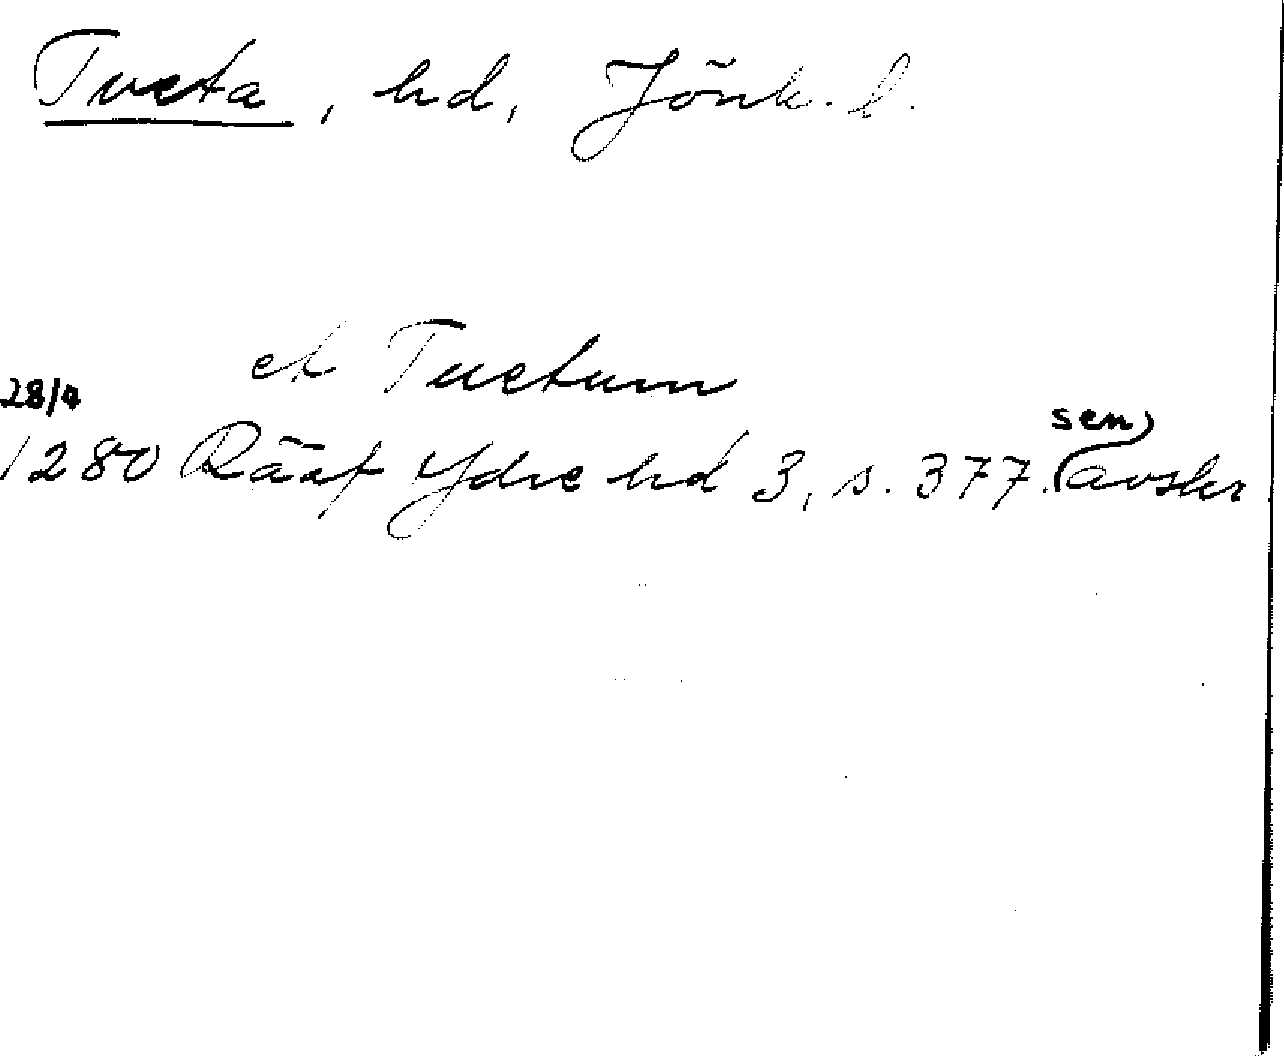 Tveta, hd, Jönk. l.
et Tuetum
28/4
1280 Rääf Ydre hd 3, s. 377. (sen) avskr